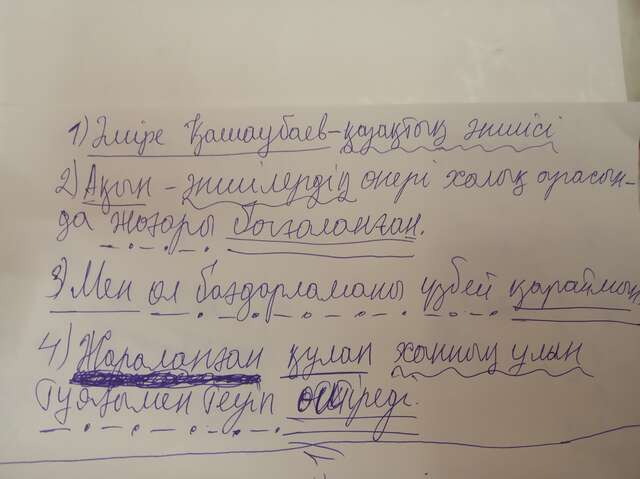 1) Әміре Қашаубаев-қазақтың әншісі
2) Ақын - әншілердің өнері халық арасын-
да жоғары бағаланған.
3) Мен ол бағдарламаны үзбей қараймын
4) Жараланған құлан ханның ұлын
Тұяғымен теуіп өлтіреді.